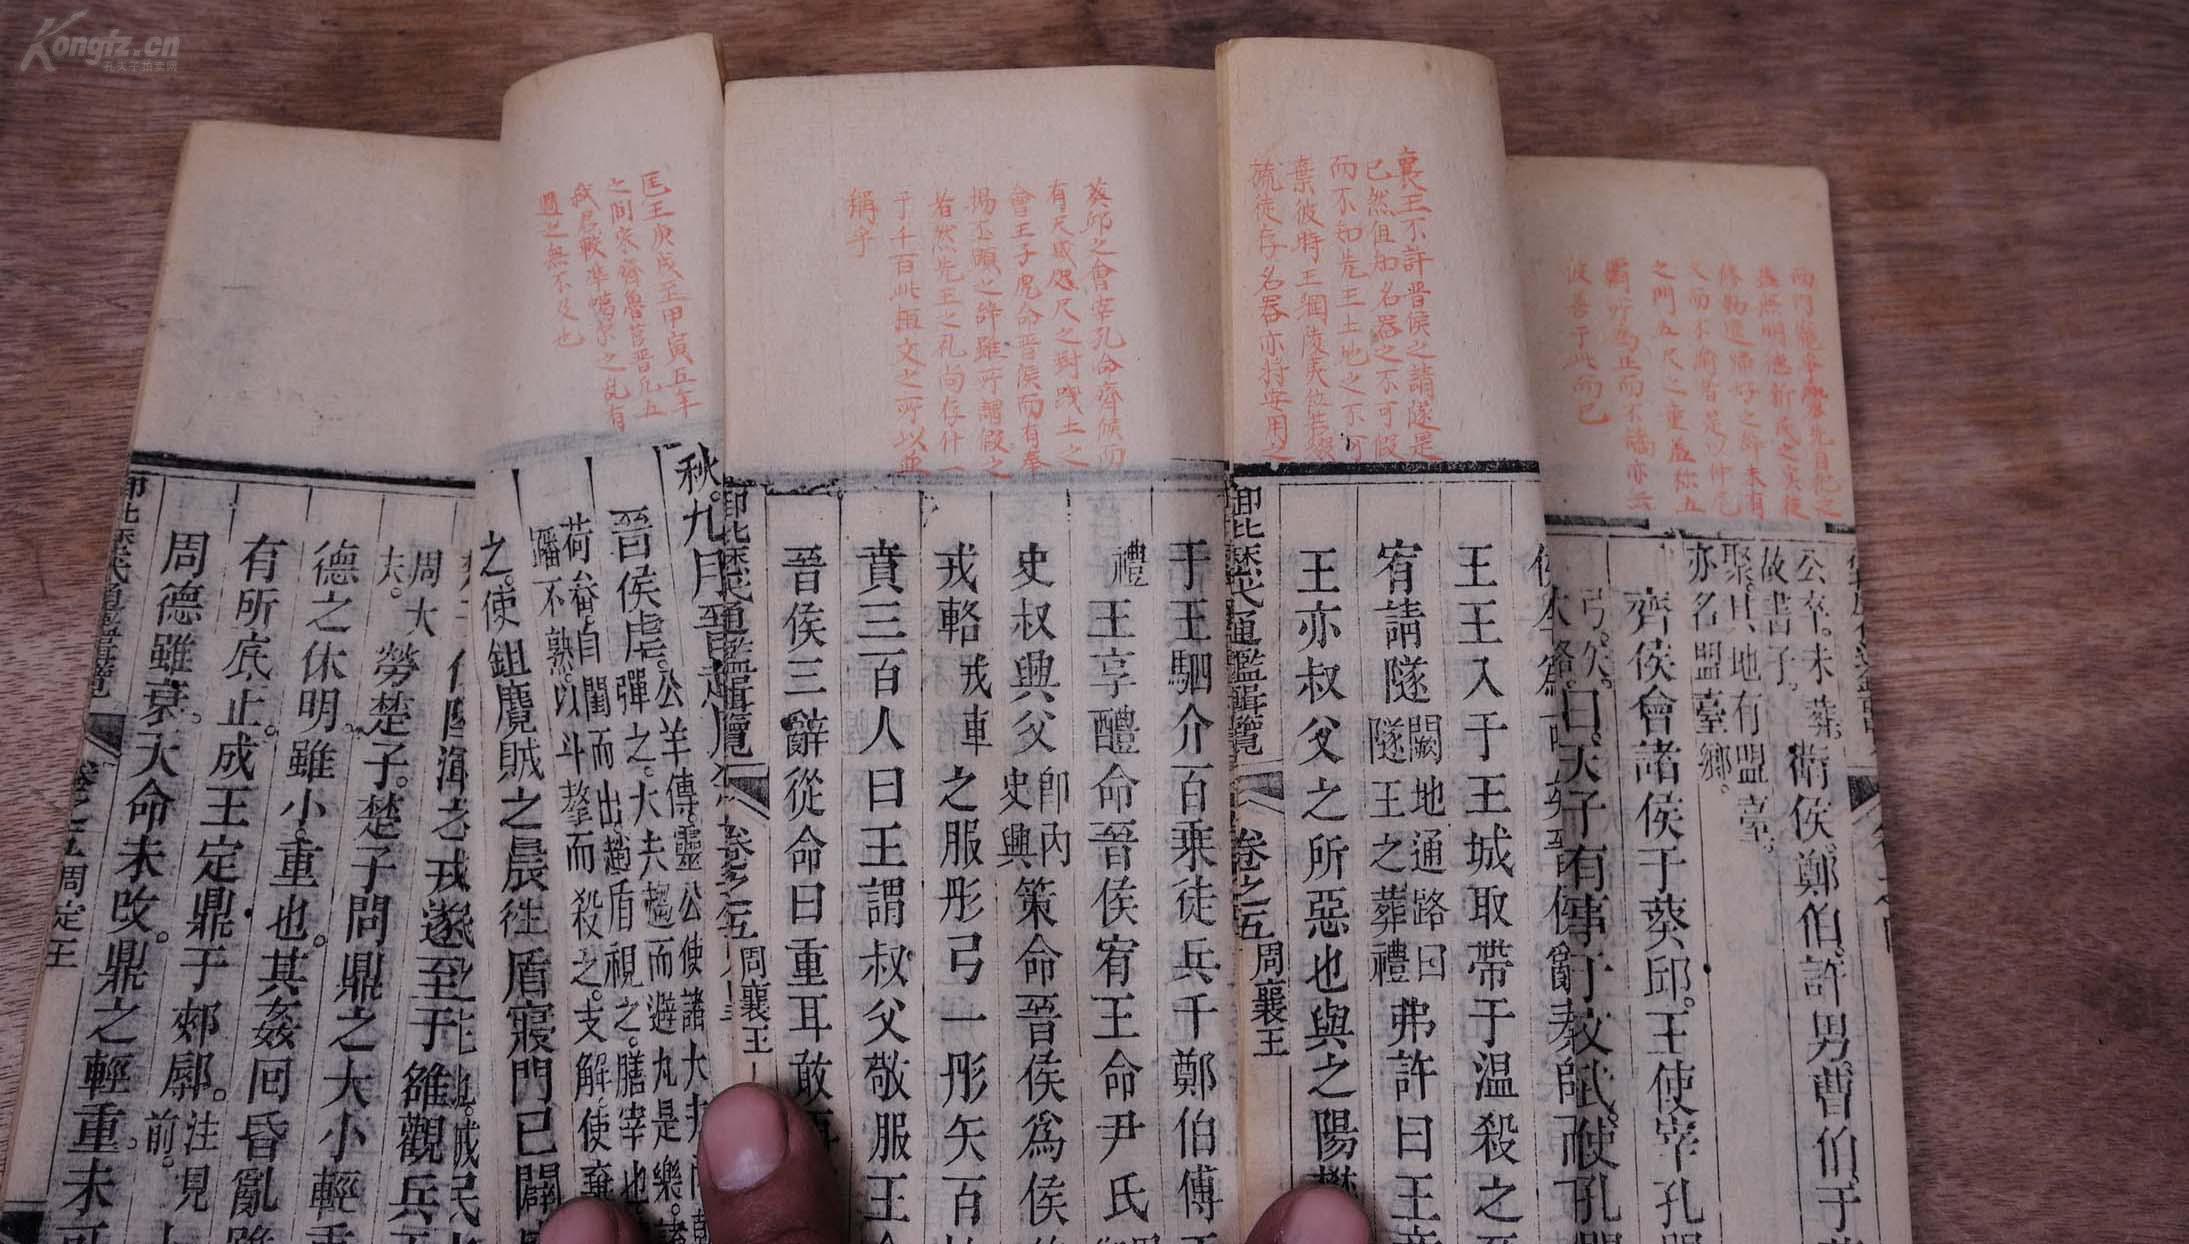 Kongfz.cn
孔夫子拍卖网
襄王不許晉侯之請隧是
已然但知名器之不可假
而不知先王土地之不可
棄彼時王綱陵夷位若綴
旒徒存名器亦將安用之
葵邱之會宰孔命齊侯而
有天威咫尺之對踐土之
會王子虎命晉侯而有奉
揚丕顯之辭雖所謂假之
若然先王之礼尚存什一
于千百此
稱乎
匡王庚戌至甲寅五年
之間宋齊魯莒晉凡五
弑君
過之無不及也
之門五尺之童羞称五
霸所為正而不譎亦云
彼善于此而已
公卒未葬
故書子。
聚。其地有盟臺。
亦名盟臺鄉。
衛侯鄭伯許男曹伯于
齊侯會諸侯于葵邱。王使宰孔
曰。天子有事于文武。使孔
王王入于王城取帶于溫殺之
宥請隧
闕地通路曰
隧王之葬禮
弗許曰王
王亦叔父之所惡也與之陽樊
御批歷代通鑑輯覽
卷之五
周襄王
于王駟介百乘徒兵千鄭伯傅
禮
王享醴命晉侯宥王命尹氏
史叔興父
卽內
史興
策命晉侯爲侯
戎輅
戎車
之服彤弓一彤矢百
賁三百人曰王謂叔父敬服王
晉侯三辭從命曰重耳敢
御批歷代通鑑輯覽
卷之五
周襄王
秋。九月。晉趙
晉侯虐。
公羊傳。靈公使諸大夫
彈之。大夫趨而避丸是樂。
荷畚自閨而出。趙盾視之。膳宰也
蹯不熟。以斗摮而殺之。支解使棄
之。使鉏麑賊之晨往盾寢門已闢
戎遂至于雒觀兵
周大
夫。
勞楚子。楚子問鼎之大小輕
德之休明。雖小。重也。其姦回昏亂雖
有所底止。成王定鼎于郟鄏。
注見
前。
周德雖衰。天命未改。鼎之輕重。未可
御批歷代通鑑輯覽
卷之五
周定王